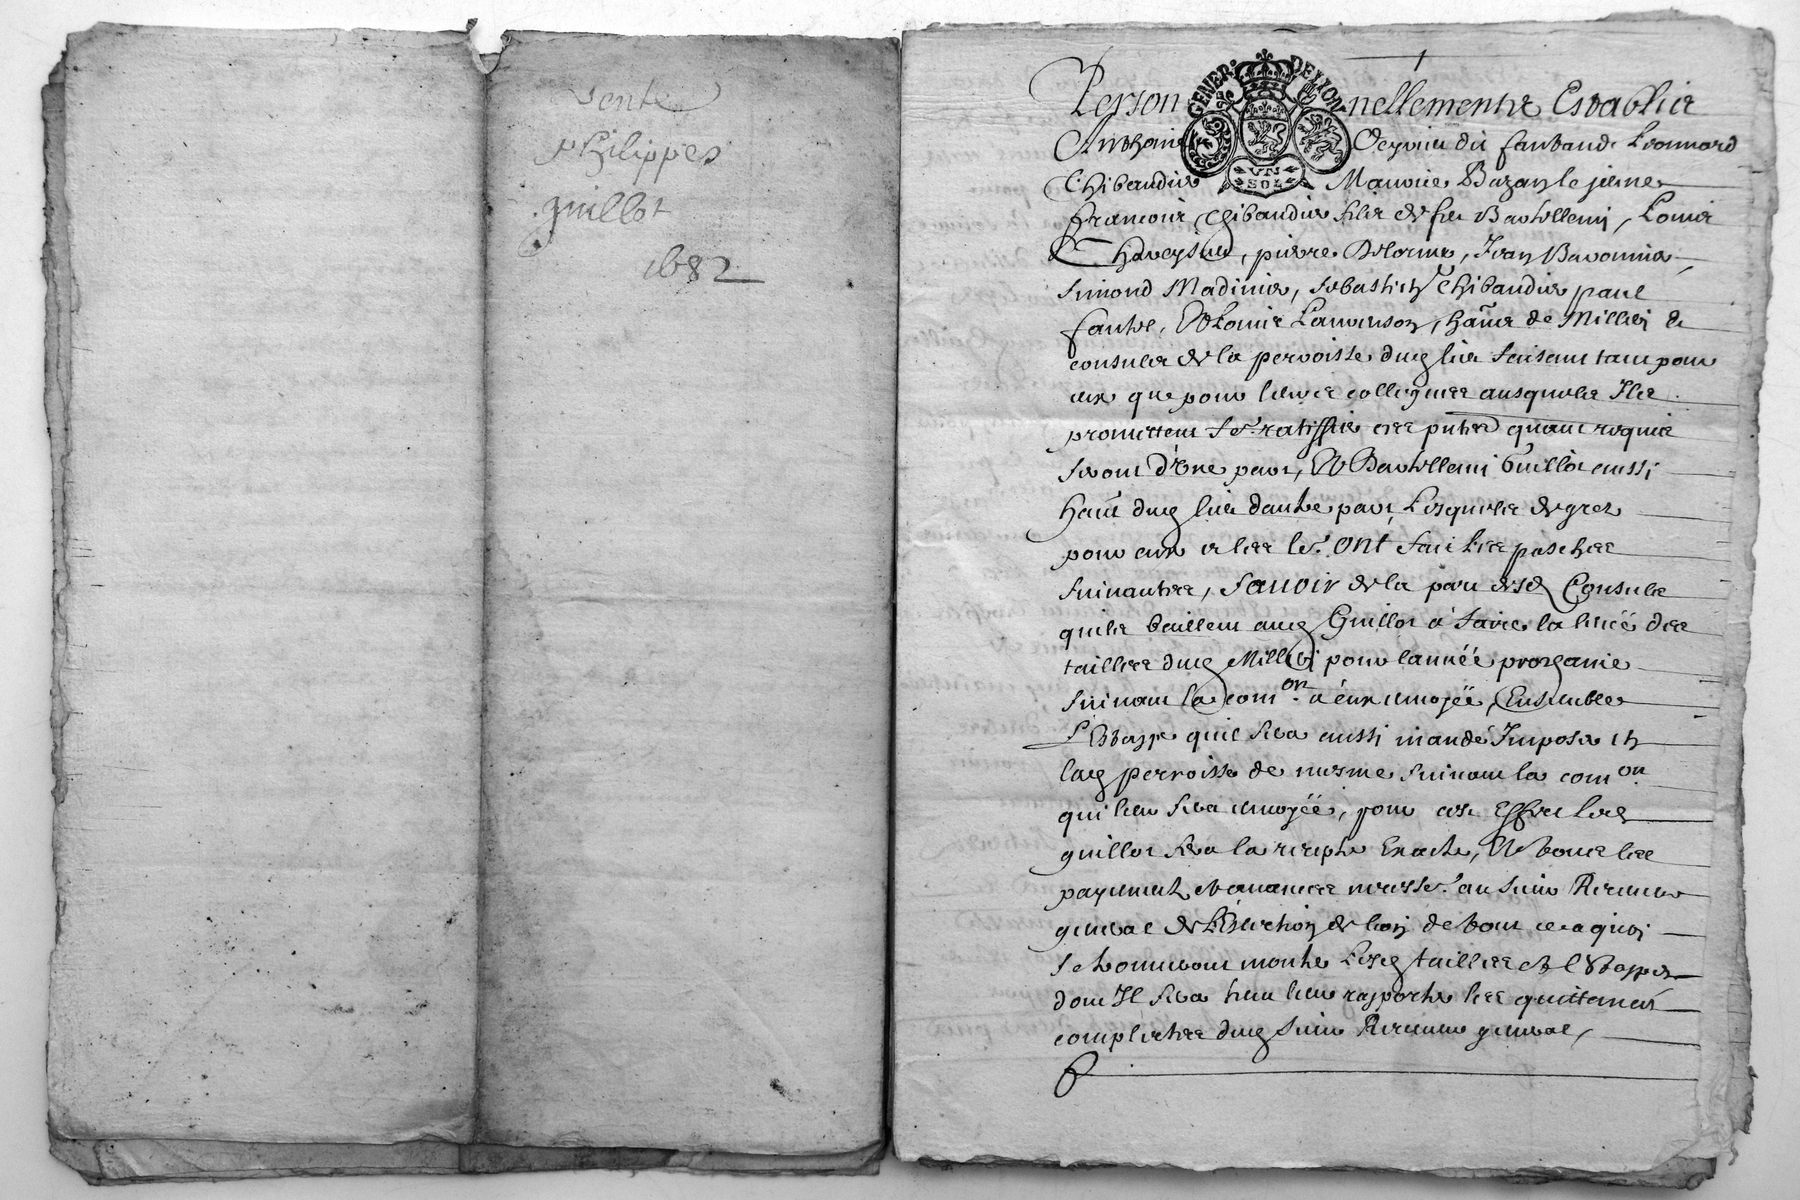 vente
philippes
guillot
1682
GENER. DE LION
VN
SOL
Personnellement Establis
Anthoine Veyrier dit fantaude Leonnard
Thibaudier Maurice Bazan le jeune
Francois Thibaudier filz de feu Barthellemi, Louis
pierre Delorme, Jean
Simond Madinier, sebastien Thibaudier paul
fautre, Et Louis Laurenson, ha͠ns de Millieri &
consulz de la perroisse dud lieu faisant tant pour
eux que pour leurs collegues ausquels Ilz
promettent fe. ratiffier ces pntes quant requis
seront d'Une part, Et Barthellemi Guillot aussi
ha͠nt dud lieu dautre part Lesquels de grez
pour eux et les leurs ont fait les paches
suivantes, savoir de la part desd Consulz
quilz baillent aud Guillot a faire la levéé des
tailles dud Millieri pour lannéé prochaine
suivant la com.on a eux envoyéé, Ensemble
L'Estappe quil sera aussi mandé Imposer en
lad perroisse de mesme suivant la com.on
qui leur sera envoyéé, pour cest Effect led
guillot fera la recepte Exacte, Et tous les
payement et avances necess.es au sieur Receveur
general de L'Eslection de lion de tout ce a quoi
se trouveront monter Lesd tailles et l'Estappe
dont Il sera tenu leur rapporter les quittances
complettes dud sieur Receveur general,